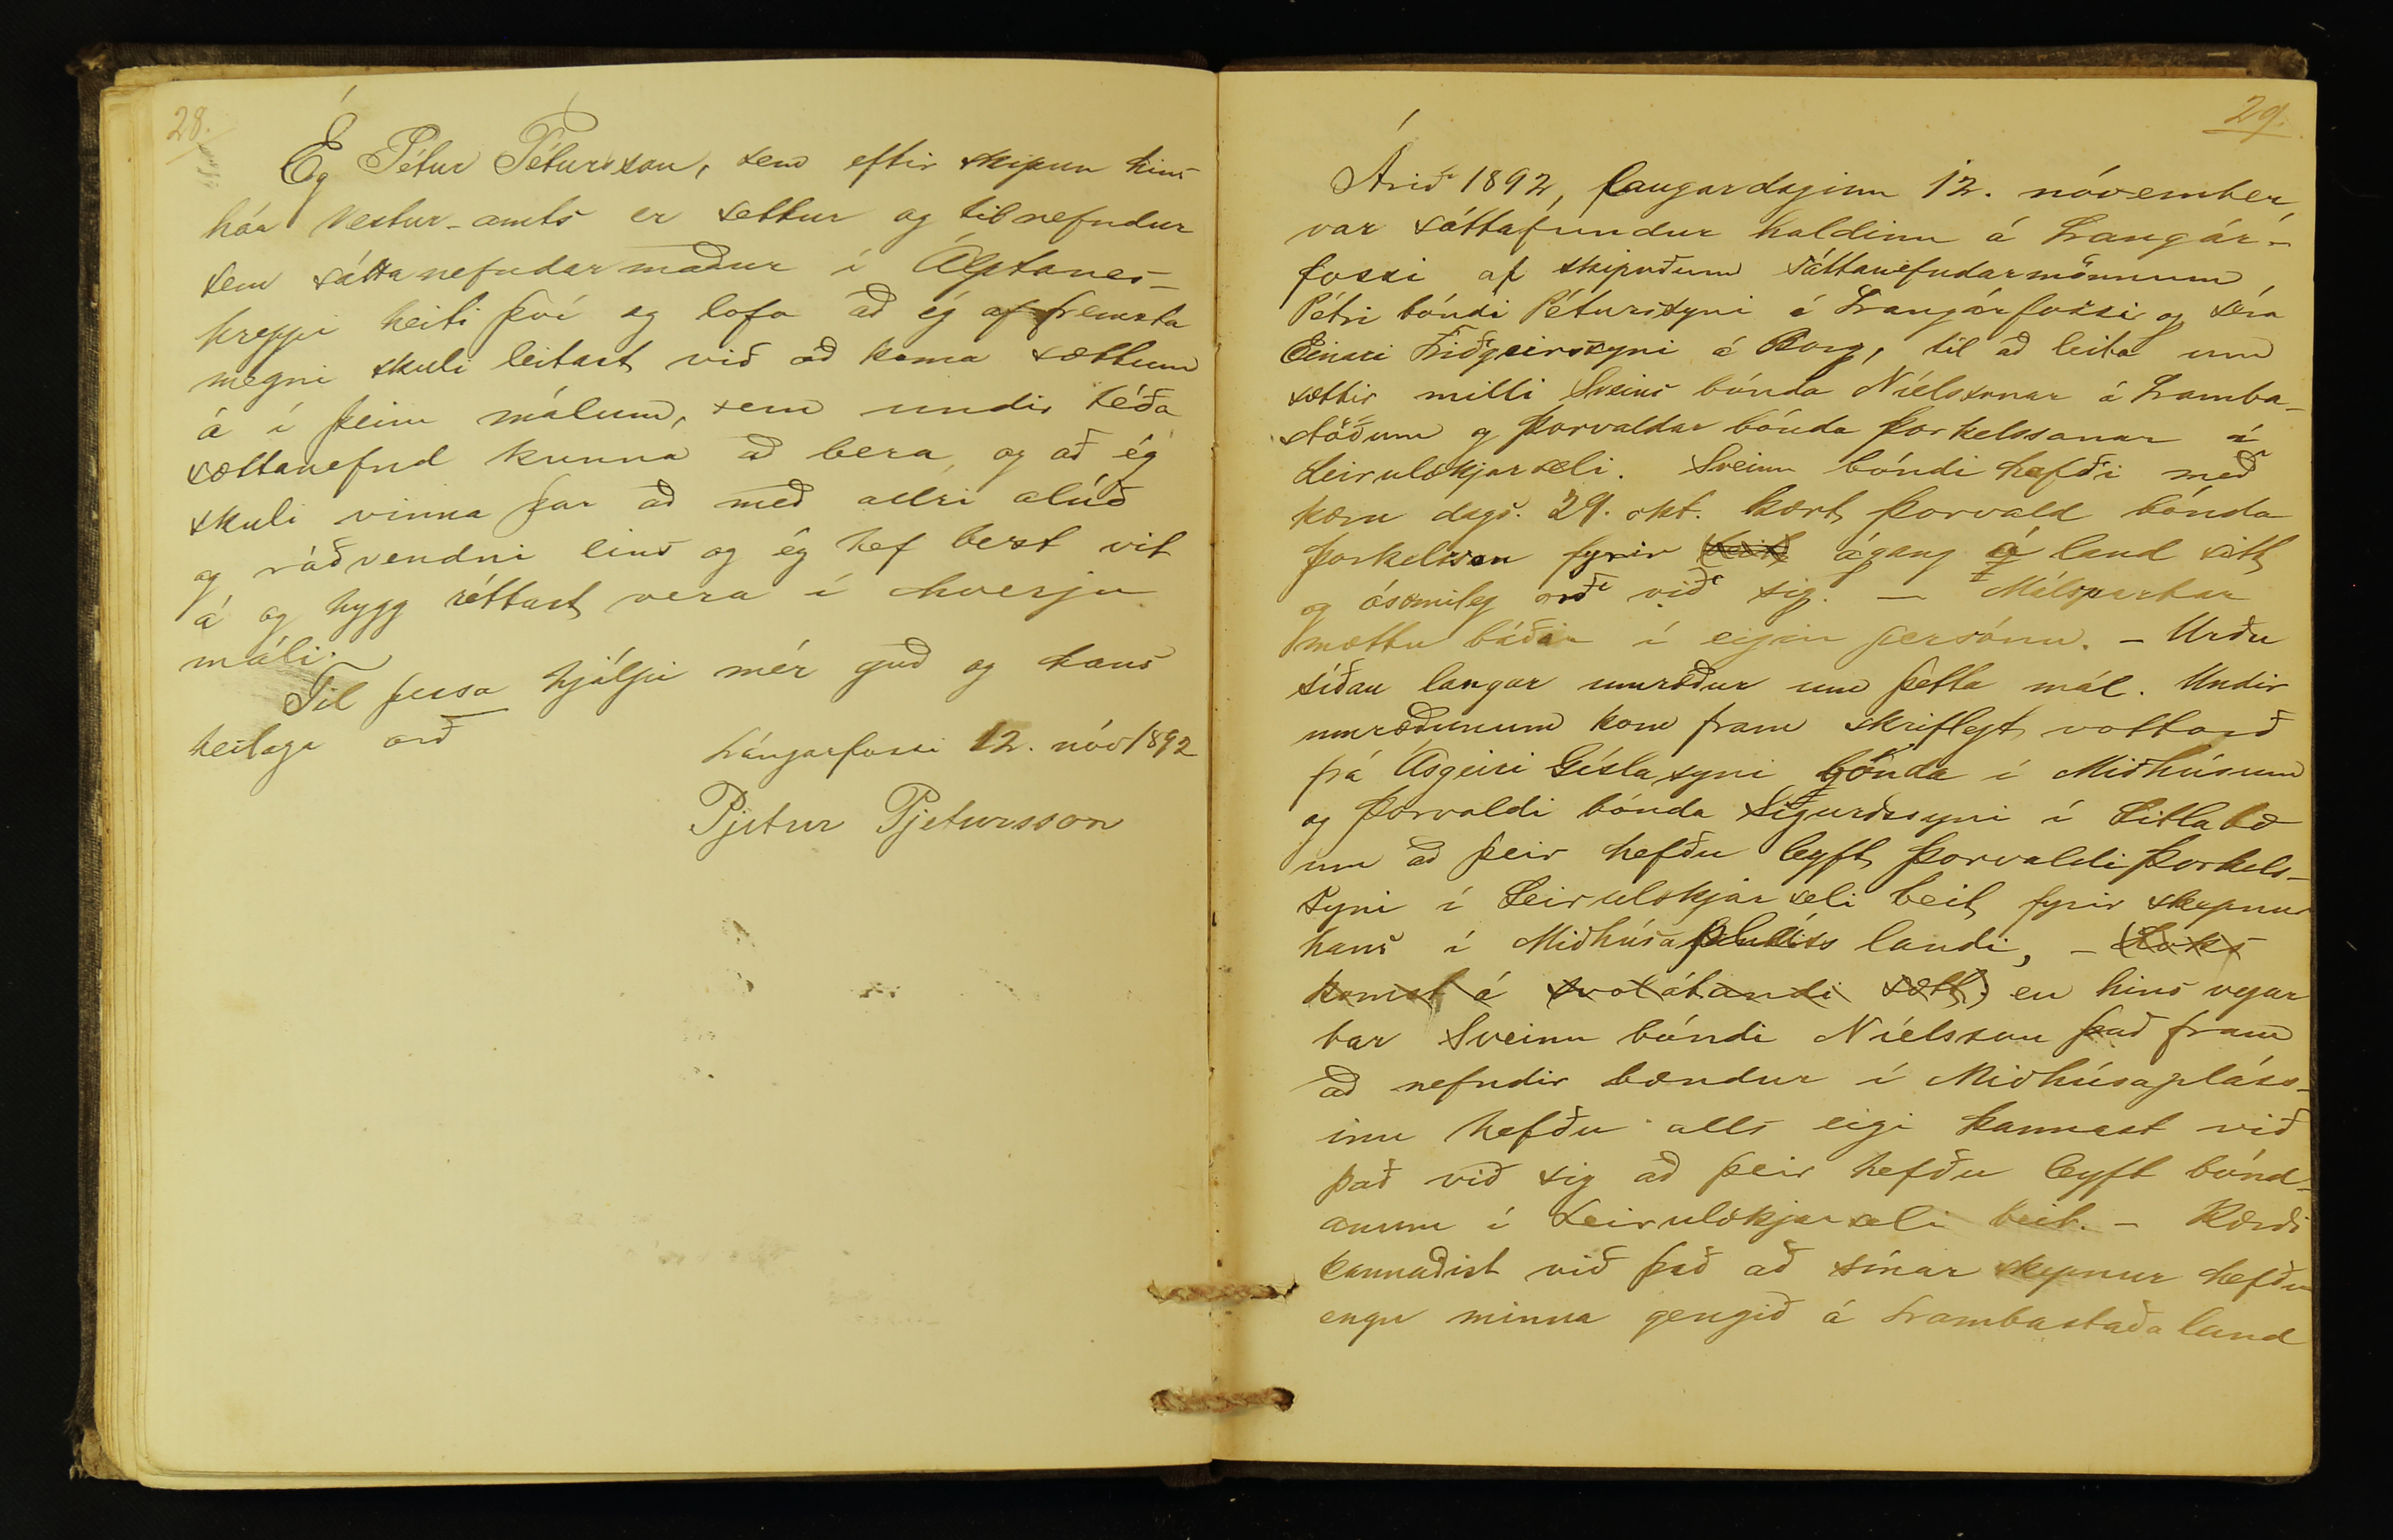 28.
Ég Pétur Pétursson, sem eftir skipun hins
háa Vestur-amts er settur og tilnefndur
sem sáttanefndarmaður í Álptanes-
hreppi heiti því og lofa að ég af fremsta
megni skuli leitast við að koma sættum
á í þeim málum, sem undir téða
sættanefnd kunna að bera, og að ég
skuli vinna þar að með allri alúð
og ráðvendni eins og ég hef best vit
á og hygg réttast vera í hverju
máli.
Til þessa hjálpi mér guð og hans
heilaga orð
Lángarfossi 12. nóv 1892
Pjetur Pjetursson
29.
Árið 1892, laugardaginn 12. nóvember
var sáttafundur haldinn á Langár-
fossi af skipuðum sáttanefndarmönnum
Pétri bóndi Péturssyni á Langárfossi og séra
Einari Friðgeirssyni á Borg, til að leita um
sættir milli Sveins bónda Níelssonar á Lamba-
stöðum og Þorvaldar bónda Þorkelssonar á
Leirulækjarseli. Sveinn bóndi hafði með
kæru dags. 29. okt. kært Þorvald bónda
Þorkelsson fyrir (beit) ágang á land sitt
og ósæmileg orð við sig. — Málspartar
mættu báðir í eigin persónu. - Urðu
síðan langar umræður um þetta mál. Undir
umræðunum kom fram skriflegt vottorð
frá Ásgeiri Gíslasyni bónda í Miðhúsum
og Þorvaldi bónda Sigurðssyni í Litlabæ
um að þeir hefðu leyft Þorvaldi Þorkels-
syni í Leirulækjarseli beit fyrir skepnur
hans í Miðhúsapláss landi, - (Loks
komst á svolátandi sætt:) en hins vegar
bar Sveinn bóndi Níelsson það fram
að nefndir bændur í Miðhúsapláss-
inu hefðu alls eigi kannast við
það við sig að þeir hefðu leyft bónd-
anum í Leirulækjarseli beit. - Kærði
kannaðist við það að sínar skepnur hefðu
engu minna gengið á Lambastaða land